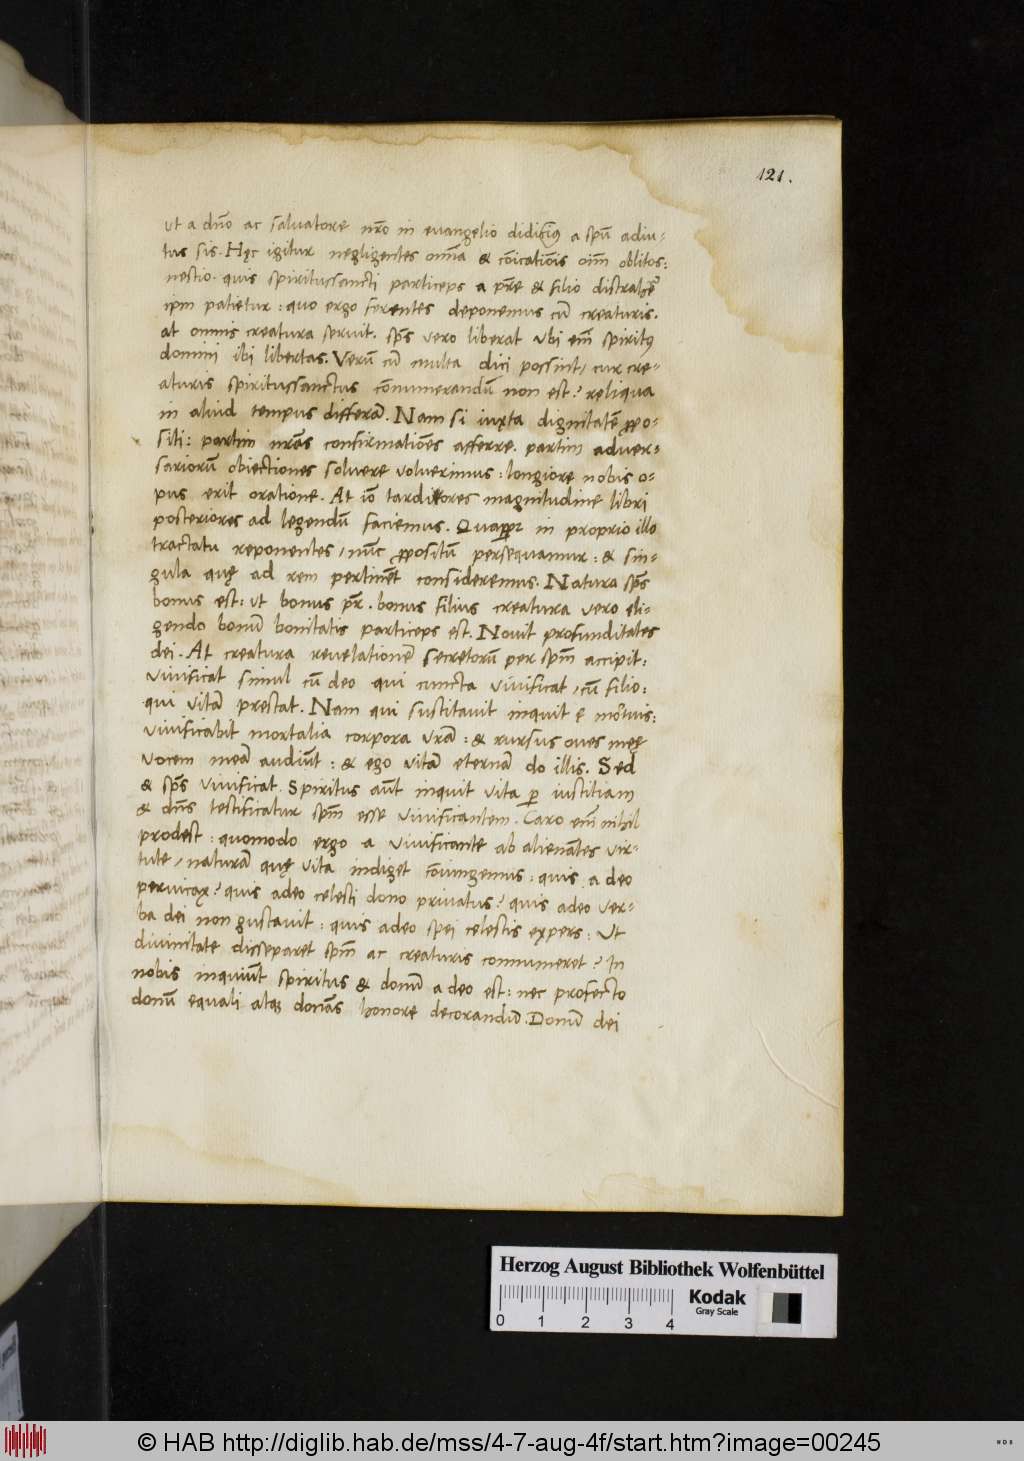 121.
ut a dn̄o ac salvatore nr̄o in evangelio didicim᷒ a spū adiu-
tus sis. Hęc igitur negligentes omn̄ia & cōīcatiōīs oīm̄ oblitos:
nescio. quis spiritussancti particeps a pr̄e & filio distrahē
ipm patietur: quo ergo ferentes deponemus cū creaturis.
at omnis creatura servit. sp̄s vero liberat ubi em̄ spirit᷒
domini ibi libertas. Verū cū multa dici possint, cur cre-
aturis spiritussanctus cōnumerandū non est? reliqua
in aliud tempus differā. Nam si iuxta dignitatē ꝓpo-
siti: partim nr̄as confirmatiōes afferre. partim adver-
sariorū obiectiones solvere voluerimus: longiore nobis o-
pus erit oratione. At iō tardiores magnitudine libri
posteriores ad legendū faciemus. Quapp̱ in proprio illo
tractatu reponentes, nūc ꝓpositū persequamur: & sin-
gula quę ad rem pertinēt consideremus. Natura sp̄s
bonus est: ut bonus pr̄. bonus filius creatura vero eli-
gendo bonū bonitatis particeps est. Novit profunditates
dei. At creatura revelationē secretorū per spm̄ accipit:
vivificat simul cū deo qui cuncta vivificat, cū filio:
qui vitā prestat. Nam qui suscitavit inquit e mōrtuis:
vivificabit mortalia corpora vr̄ā: & rursus oves męę
vocem meā audiūt: & ego vitā eternā do illis. Sed
& sp̄s vivificat. Spiritus aūt inquit vita ꝑ iustitiam
& dn̄s testificatur spm̄ esse vivificantem. Caro em̄ nihil
prodest: quomodo ergo a vivificante ab alienātes vir-
tute, naturā quę vita indiget cōiungemus: quis a deo
pervicax? quis adeo celesti dono privatus? quis adeo ver-
ba dei non gustavit: quis adeo spei celestis expers: Ut
divinitate disseparet spm̄ ac creaturis connumeret? In
nobis inquiūt spiritus & donū a deo est: nec profecto
donū equali atq; donās honore decorandū. Donū dei
Herzog August Bibliothek Wolfenbüttel
0 1 2 3 4
Kodak
Gray Scale
© HAB http://diglib.hab.de/mss/4-7-aug-4f/start.htm?image=00245